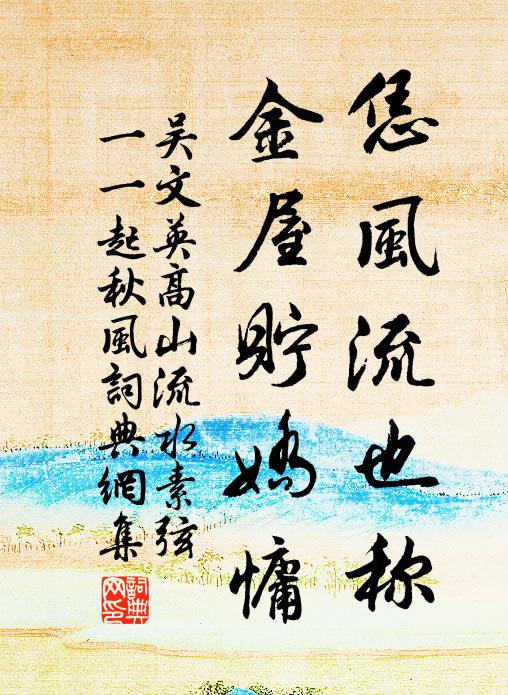 恁風流也称
金屋貯嬌慵
吴文英高山流水素弦
一一起秋風詞典網集
詞典